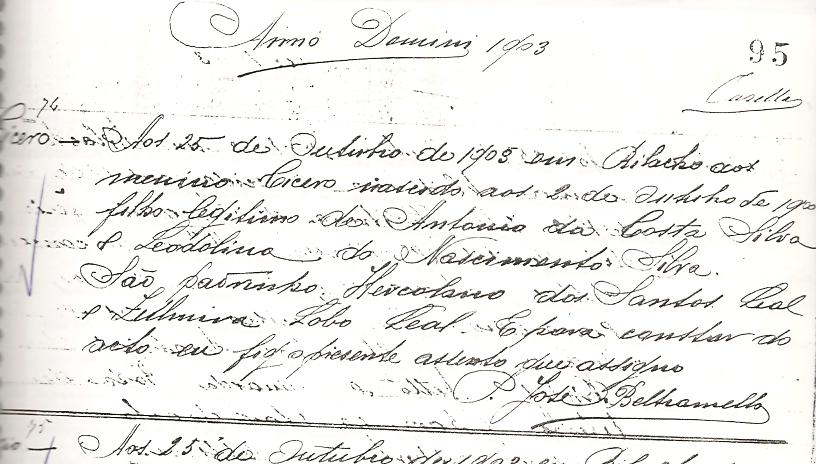 Anno Domini 1903
95
74
Cicero - Aos 25 de Outubro de 1903 em Riacho aos
menino Cicero nascido aos 2 de Outubro de 190
filho legitimo de Antonio da Costa Silva
e Leodolina do Nascimento Silva.
São padrinho Herculano dos Santos Leal
e Lobo Leal. E para constar do
acto eu fiz o presente assento que assigno
P. José Beltramello
75
Aos 25 de Outubro de 1903 em